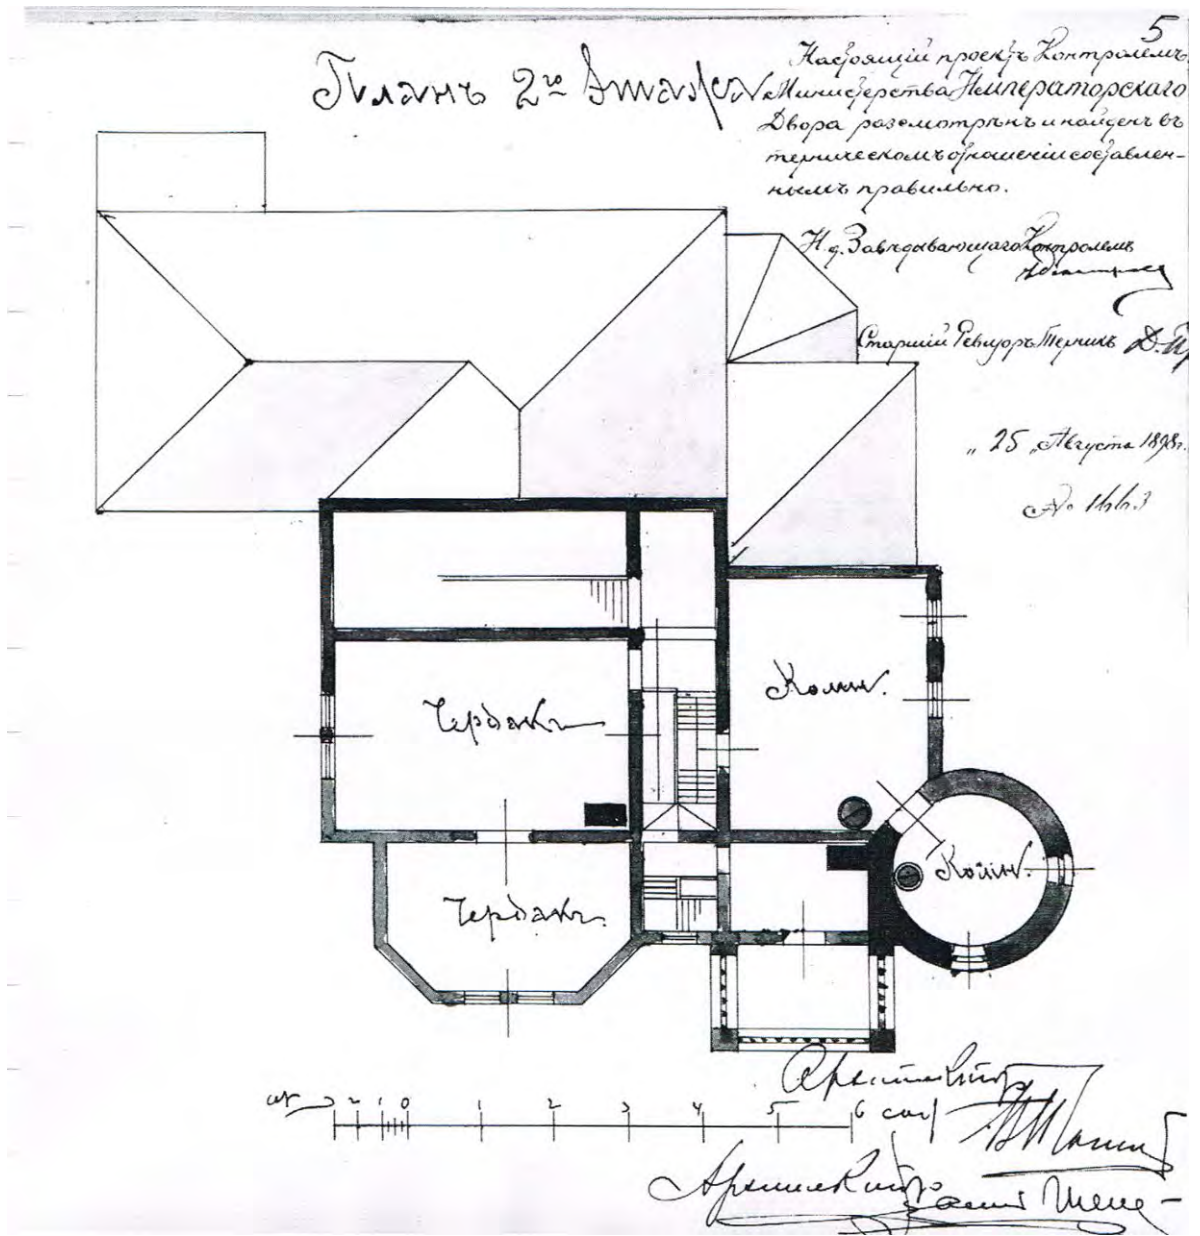 5
Планъ 2го Этажа
Настоящій проектъ Контролемъ
Министерства Императорскаго
Двора разсмотрѣнъ и найденъ въ
техническомъ отношеніи составлен-
нымъ правильно.
И.д. Завѣдывающаго Контролемъ
Старшій Ревизоръ Техникъ Д.
"25" Августа 189 г.
№
Чердакъ
Комн.
Чердакъ
Комн.
2 1 0 1 2 3 4 5 6 саж
Архитекторъ
Архитекторъ